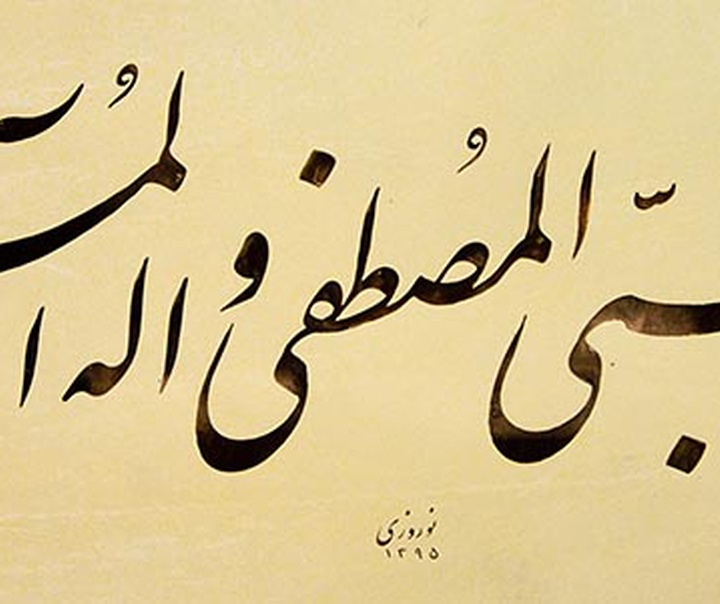 المُصطفی و اله
نوروزی
۱۳۹۵